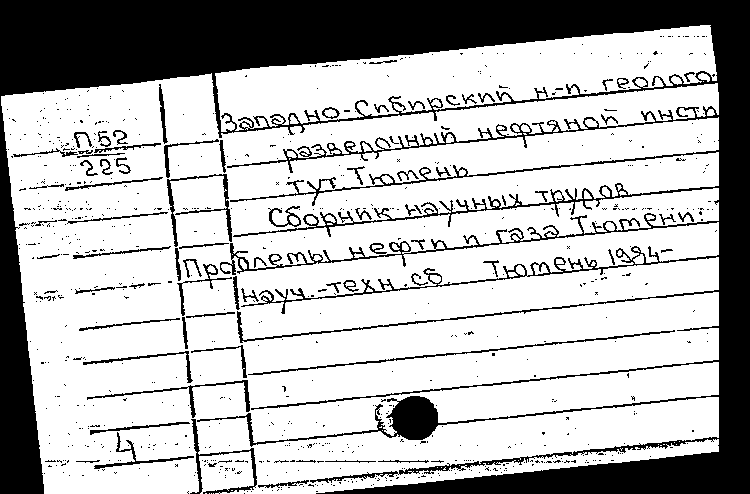 Западно-Сибирский н.-п. геолого-
П 52
225
разведочный нефтяной инсти
тут. Тюмень
Сборник научных трудов
Проблемы нефти и газа Тюмени:
науч.-техн. сб. Тюмень, 1984-
4